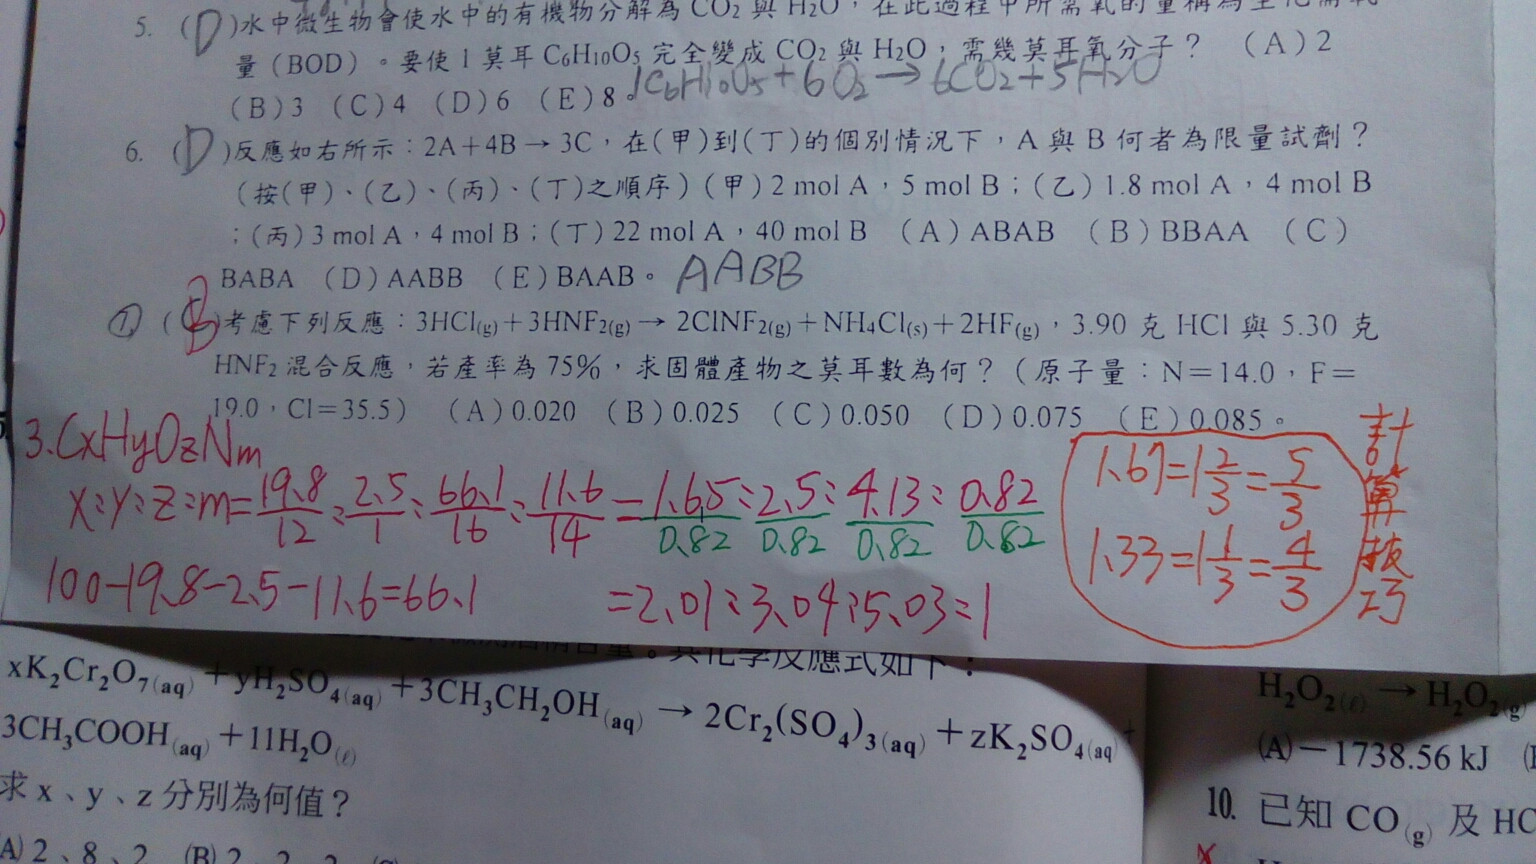 5. (D)水中微生物會使水中的有機物分解為 CO₂ 與 H₂O，在此過程中所需氧的量稱為生化需氧
量(BOD)。要使 1 莫耳 C₆H₁₀O₅ 完全變成 CO₂ 與 H₂O，需幾莫耳氧分子？ (A)2
(B)3 (C)4 (D)6 (E)8。 1C₆H₁₀O₅+6O₂→6CO₂+5H₂O
6. (D)反應如右所示：2A+4B→3C，在(甲)到(丁)的個別情況下，A 與 B 何者為限量試劑？
(按(甲)、(乙)、(丙)、(丁)之順序)(甲)2 mol A，5 mol B；(乙)1.8 mol A，4 mol B
；(丙)3 mol A，4 mol B；(丁)22 mol A，40 mol B (A)ABAB (B)BBAA (C)
BABA (D)AABB (E)BAAB。 AABB
7. (B)考慮下列反應：3HCl(g)+3HNF₂(g)→2ClNF₂(g)+NH₄Cl(s)+2HF(g)，3.90 克 HCl 與 5.30 克
HNF₂ 混合反應，若產率為 75%，求固體產物之莫耳數為何？(原子量：N=14.0，F=
19.0，Cl=35.5) (A)0.020 (B)0.025 (C)0.050 (D)0.075 (E)0.085。
3. CxHyOzNm
x:y:z:m=19.8/12:2.5/1:66.1/16:11.6/14=1.65/0.82:2.5/0.82:4.13/0.82:0.82/0.82
100-19.8-2.5-11.6=66.1 =2.01:3.04:5.03:1
1.67=1 2/3=5/3
1.33=1 1/3=4/3
計算技巧
其化學反應式如下：
xK₂Cr₂O₇(aq)+yH₂SO₄(aq)+3CH₃CH₂OH(aq)→2Cr₂(SO₄)₃(aq)+zK₂SO₄(aq)+
3CH₃COOH(aq)+11H₂O(ℓ)
求 x、y、z 分別為何值？
(A) 2、8、2 (B) 2、2、2
H₂O₂(ℓ)→H₂O₂(g)
(A)－1738.56 kJ
10. 已知 CO(g) 及 HC